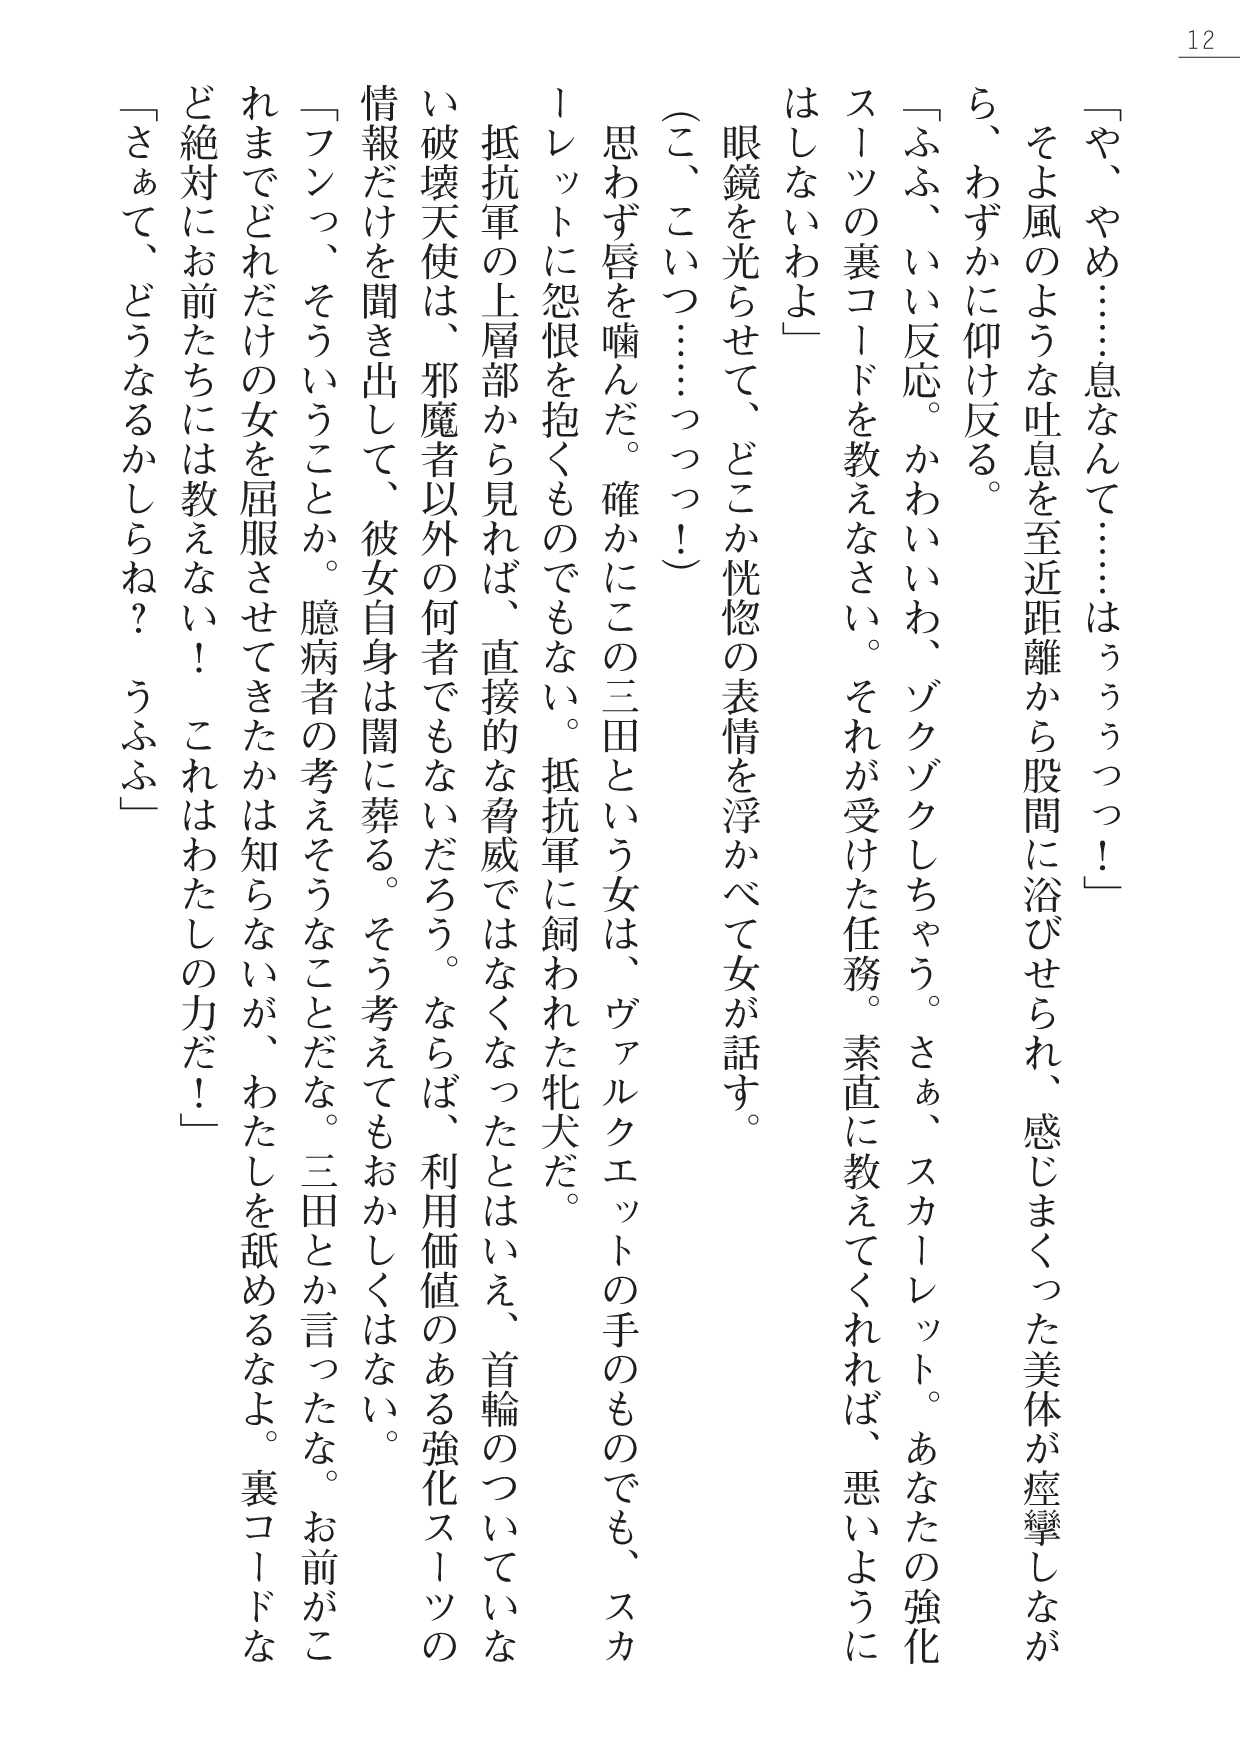 12
「や、やめ……息なんて……はぅぅぅっっ！」
　そよ風のような吐息を至近距離から股間に浴びせられ、感じまくった美体が痙攣しなが
ら、わずかに仰け反る。
「ふふ、いい反応。かわいいわ、ゾクゾクしちゃう。さぁ、スカーレット。あなたの強化
スーツの裏コードを教えなさい。それが受けた任務。素直に教えてくれれば、悪いように
はしないわよ」
　眼鏡を光らせて、どこか恍惚の表情を浮かべて女が話す。
（こ、こいつ……っっっ！）
　思わず唇を噛んだ。確かにこの三田という女は、ヴァルクエットの手のものでも、スカ
ーレットに怨恨を抱くものでもない。抵抗軍に飼われた牝犬だ。
　抵抗軍の上層部から見れば、直接的な脅威ではなくなったとはいえ、首輪のついていな
い破壊天使は、邪魔者以外の何者でもないだろう。ならば、利用価値のある強化スーツの
情報だけを聞き出して、彼女自身は闇に葬る。そう考えてもおかしくはない。
「フンっ、そういうことか。臆病者の考えそうなことだな。三田とか言ったな。お前がこ
れまでどれだけの女を屈服させてきたかは知らないが、わたしを舐めるなよ。裏コードな
ど絶対にお前たちには教えない！　これはわたしの力だ！」
「さぁて、どうなるかしらね？　うふふ」